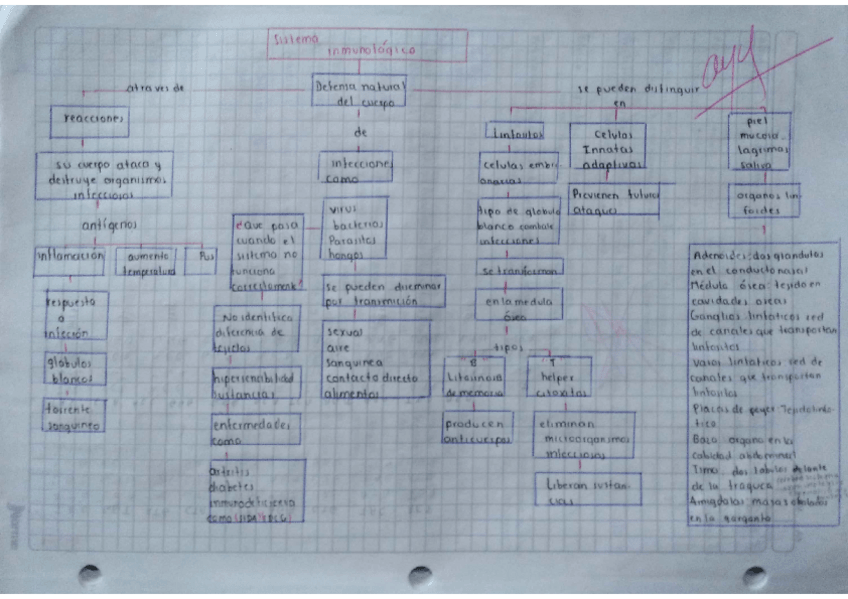 Sistema
Inmunológico
atraves de
Defensa natural
del cuerpo
se pueden distinguir
en
reacciones
su cuerpo ataca y
destruye organismos
infecciosos
antígenos
inflamación
aumento
temperatura
Pus
respuesta
a
infección
globulos
blancos
torrente
sanguineo
de
infecciones
como
virus
bacterias
Parasitos
hongos
se pueden diseminar
por transmición
sexual
aire
sanguinea
contacto directo
alimentos
que pasa
cuando el
sistema no
funciona
correctamente
No identifica
diferencia de
hipersencibilidad
sustancias
enfermedades
como
artritis
diabetes
Linfocitos
celulas embri
onarias
tipo de globulo
blanco combate
infecciones
se transforman
en la medula
ósea
tipos
B
de memoria
producen
anticuerpos
T
helper
eliminan
microorganismos
infecciosos
Liberan sustan
cias
Celulas
Innatas
adaptivas
Previenen futuro
ataque
piel
mucosa
lagrimas
saliva
organos lin
foides
Adenoides: dos glandulas
en el conducto nasal
Médula ósea: tejido en
cavidades oseas
Ganglios linfaticos red
de canales que transportan
linfocitos
Vasos linfaticos red de
canales que transportan
linfocitos
Placas de peyer Tejido linfa
tico
Bazo organo en la
cabidad abdominal
Timo dos lobulos delante
de la traquea
Amigdalas masas oboladas
en la garganta